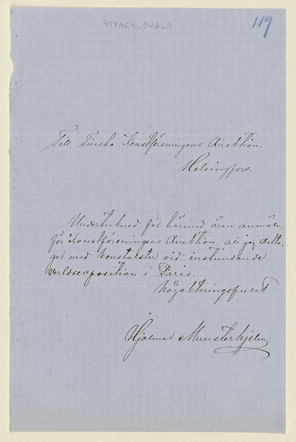 119
Till Finska Konstföreningens Direktion.
Helsingfors.
Undertecknad får härmed äran anmäla
för Konstföreningens Direktion, att jag delta-
ger med konstalster vid instundande
verldsexposition i Paris.
Högaktningsfullt
Hjalmar Munsterhjelm